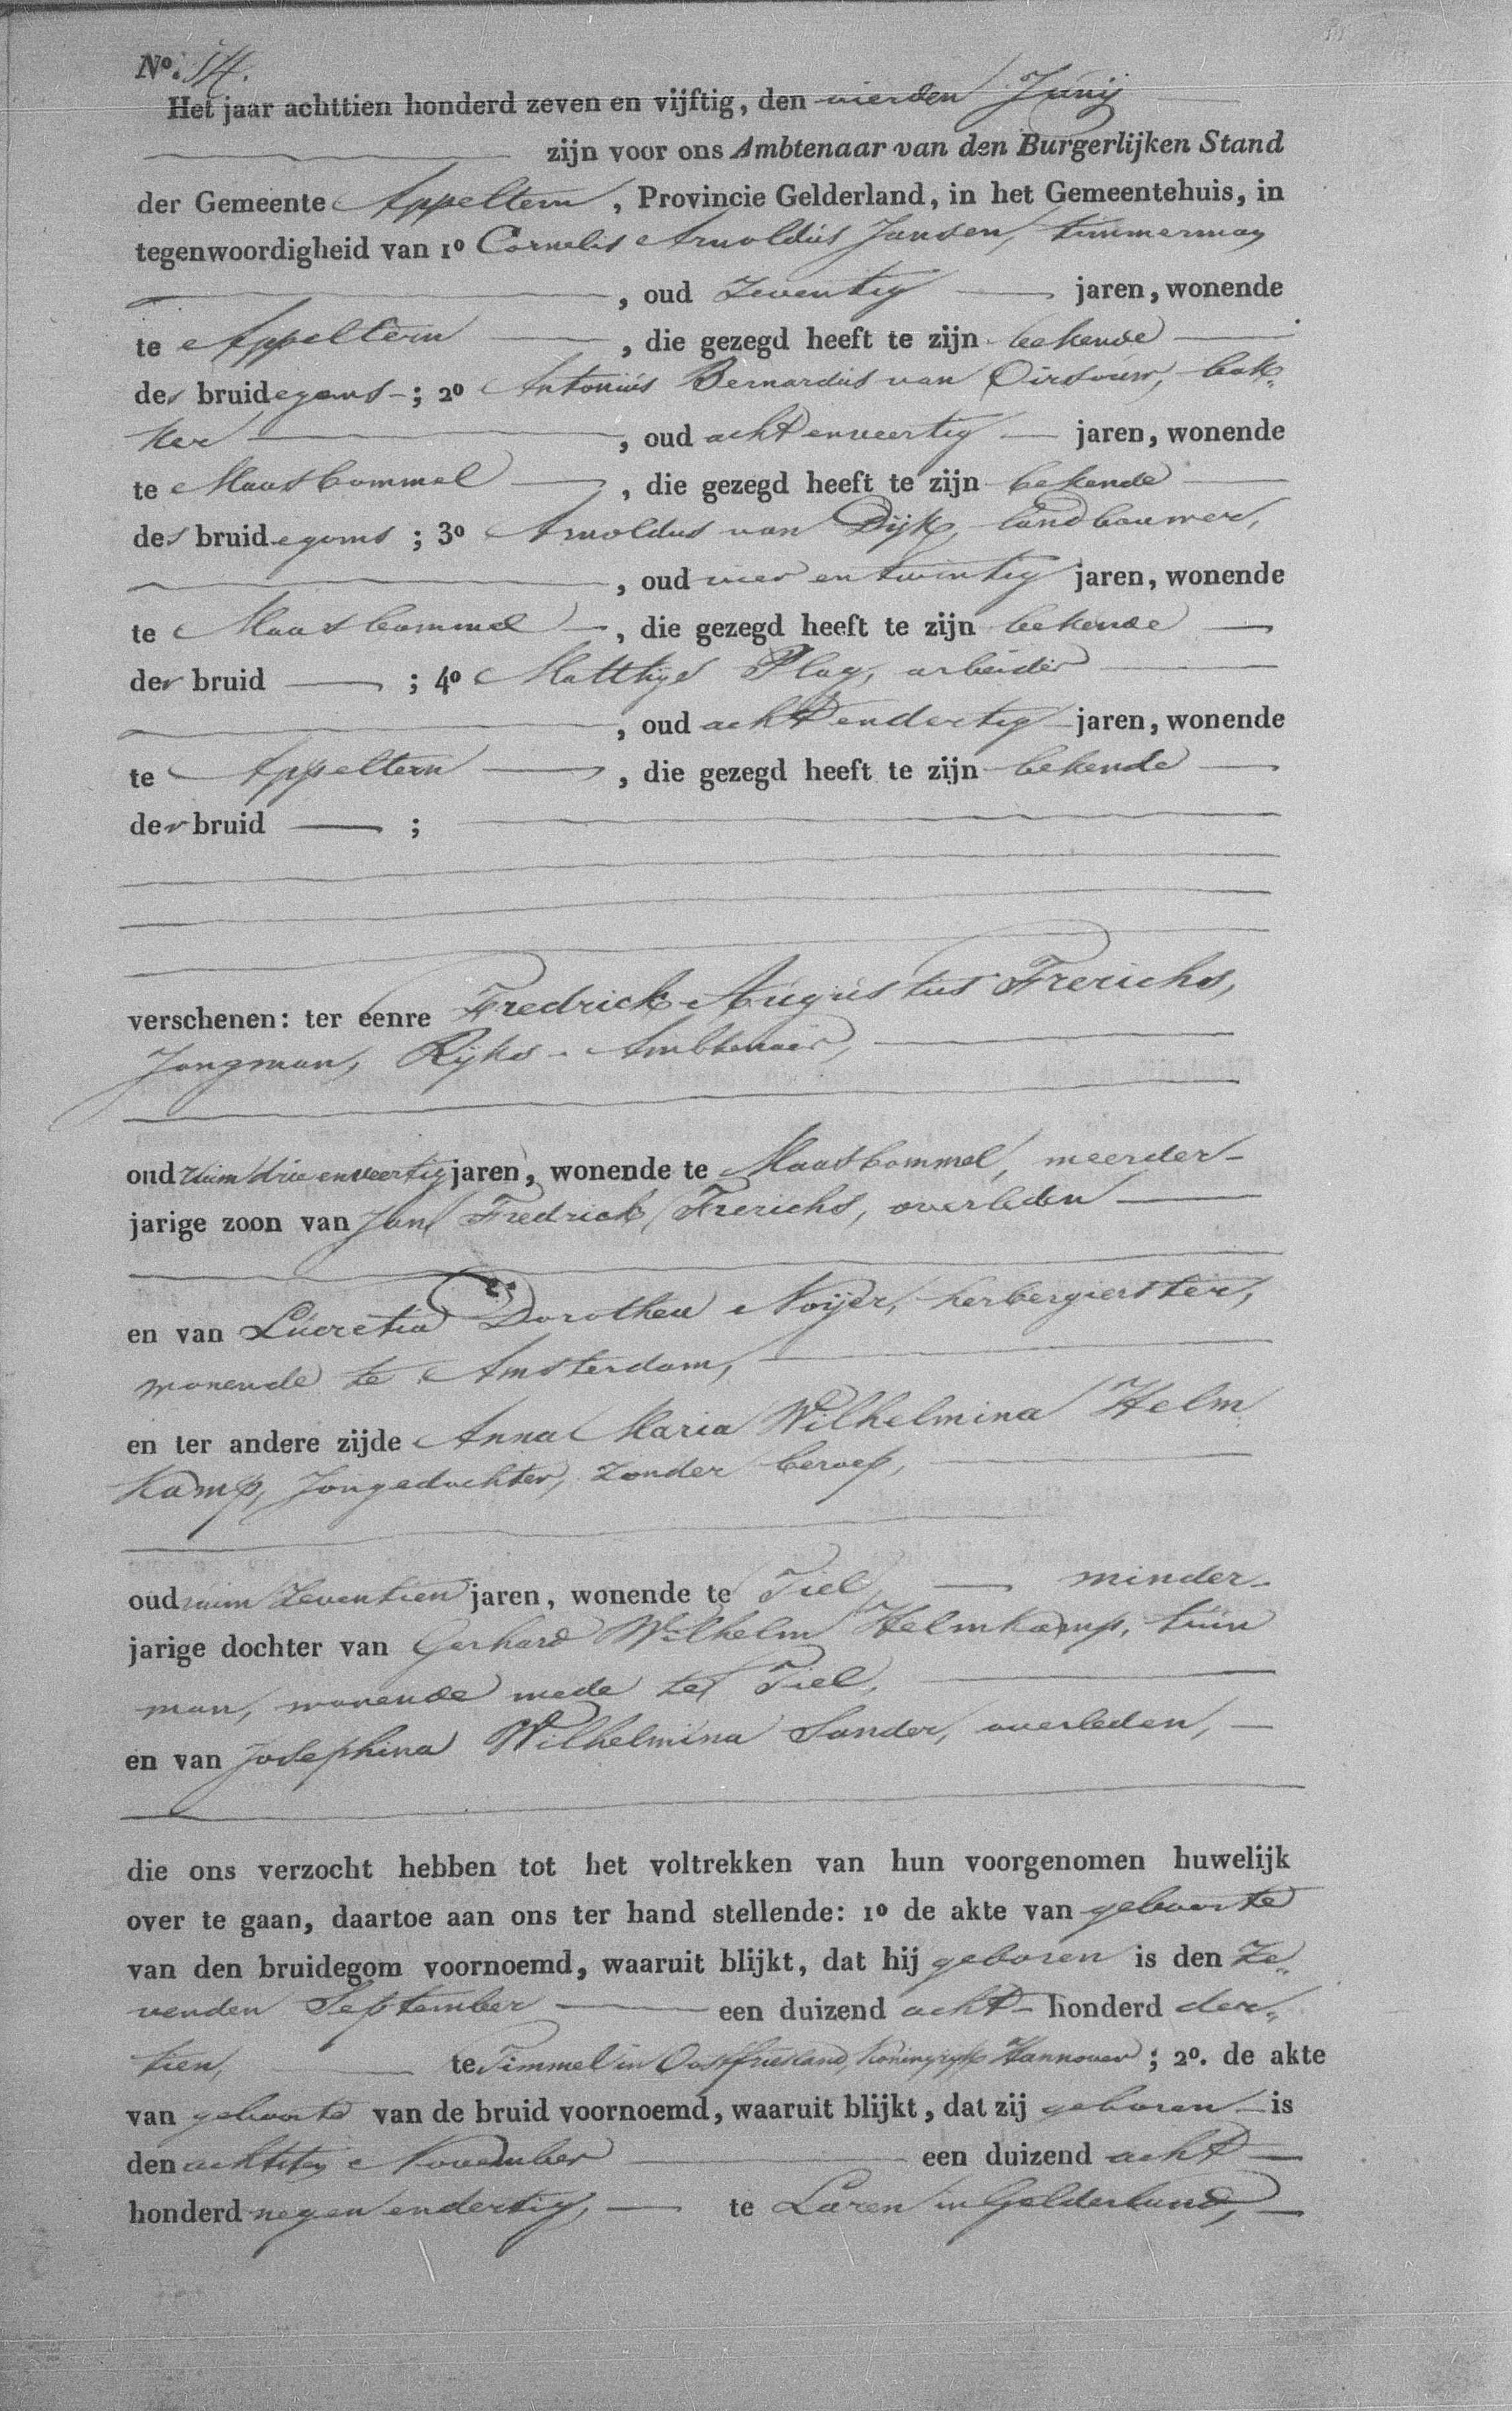 No. 14.
Het jaar achttien honderd zeven en vijftig, den vierden Junij
zijn voor ons Ambtenaar van den Burgerlijken Stand
der Gemeente Appeltern, Provincie Gelderland, in het Gemeentehuis, in
tegenwoordigheid van 1º Cornelis Arnoldus Jansen, timmerman
, oud zeventig jaren, wonende
te Appeltern, die gezegd heeft te zijn bekende
des bruidegoms; 2º Antonius Bernardus van Oirsouw, bak„
ker, oud acht en veertig jaren, wonende
te Maasbommel, die gezegd heeft te zijn bekende
des bruidegoms; 3º Arnoldus van Dijk, landbouwer,
, oud vier en twintig jaren, wonende
te Maasbommel, die gezegd heeft te zijn bekende
der bruid; 4º Matthijs Plag, arbeider
, oud acht en dertig jaren, wonende
te Appeltern, die gezegd heeft te zijn bekende
der bruid;
verschenen: ter eenre Fredrick Augustus Frerichs,
Jongman, Rijks-Ambtenaar,
oud ruim drie en veertig jaren, wonende te Maasbommel, meerder-
jarige zoon van Jan Fredrick Frerichs, overleden
en van Lucretia Dorothea Noijer, herbergierster,
wonende te Amsterdam,
en ter andere zijde Anna Maria Wilhelmina Helm
kamp, Jongedochter, zonder beroep,
oud ruim zeventien jaren, wonende te Tiel, minder-
jarige dochter van Gerhard Wilhelm Helmkamp, tuin
man, wonende mede te Tiel,
en van Josephina Wilhelmina Sander, overleden,
die ons verzocht hebben tot het voltrekken van hun voorgenomen huwelijk
over te gaan, daartoe aan ons ter hand stellende: 1º de akte van geboorte
van den bruidegom voornoemd, waaruit blijkt, dat hij geboren is den Ze„
venden September een duizend acht honderd der„
tien, te Timmel in Oostfriesland, Koningrijk Hannover; 2º. de akte
van geboorte van de bruid voornoemd, waaruit blijkt, dat zij geboren is
den November een duizend acht
honderd negen en dertig, te Laren in Gelderland,